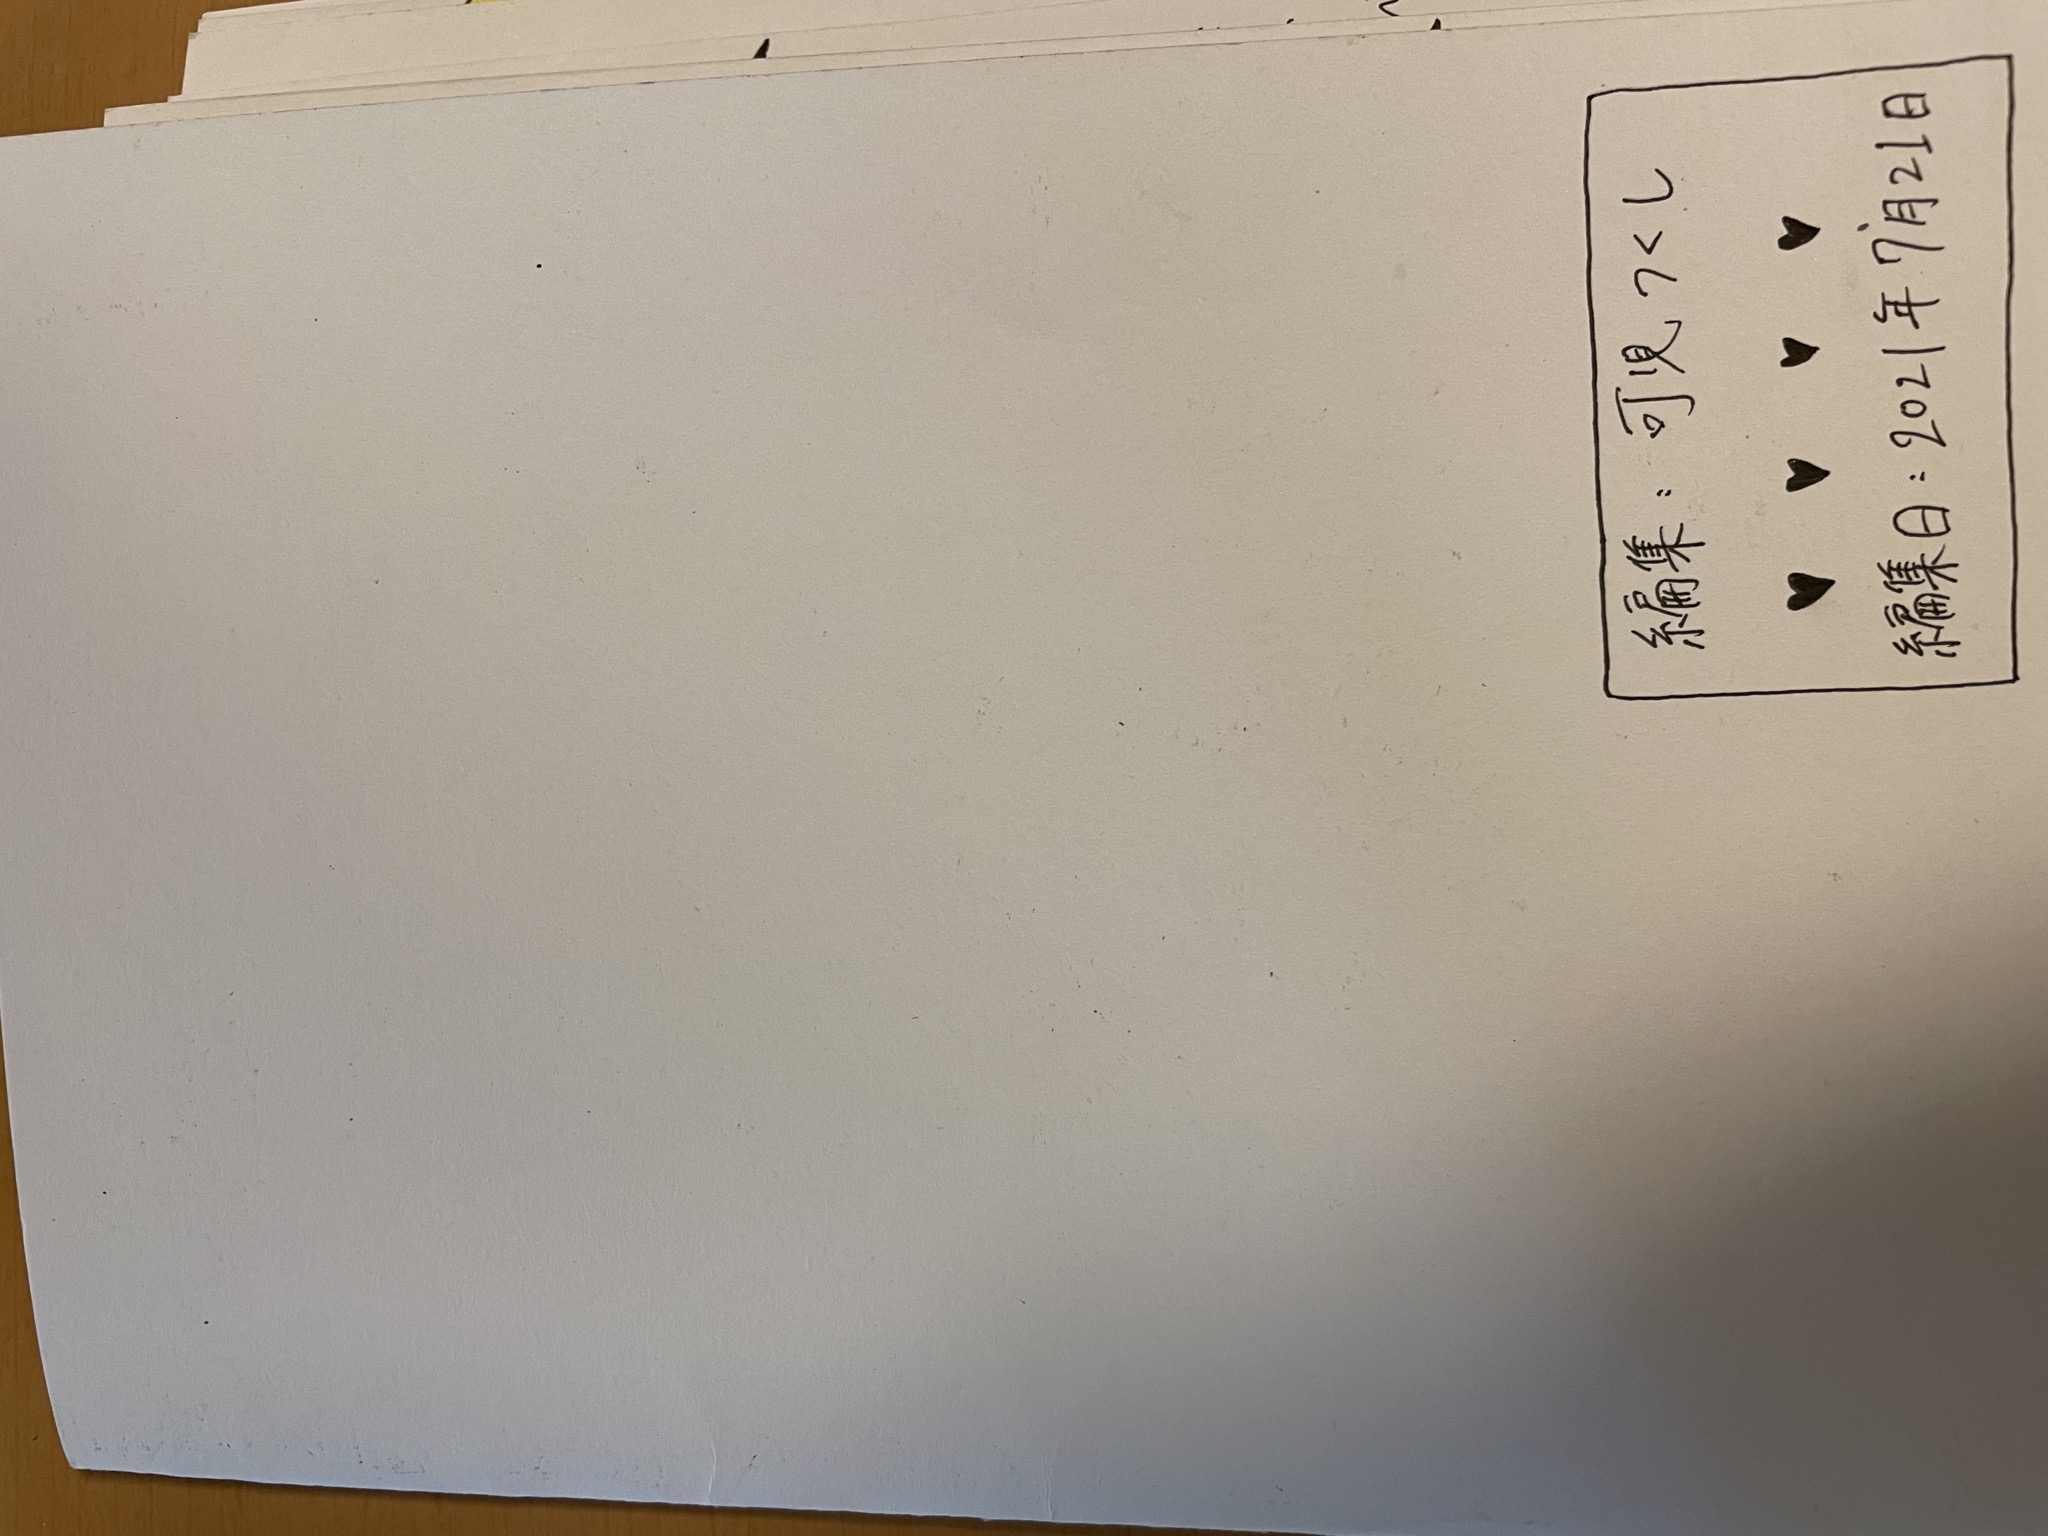 編集：可児つくし
♥ ♥ ♥ ♥
編集日：2021年7月21日